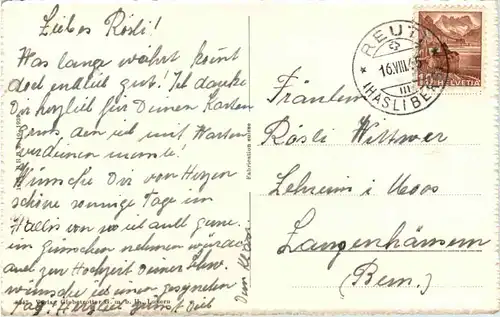 Liebes Rösli!
Was lange währt kommt
doch endlich gut! Ich danke
Dir herzlich für Deinen Karten
gruss, den ich mit Warten
verdienen musste!
Wünsche Dir von Herzen
schöne sonnige Tage im
von wo ich auch gerne
ein nehmen würde
auch zur Hochzeit Deiner Schw.
wünsche ich einen gesegneten
Tag. Herzlich grüsst Dich
Dein
Fräulein
Rösli Wittwer
Lehrerin i Moos
Langenhäusern
(Bern.)
REUTI
16.VIII.
(HASLIBERG)
HELVETIA
Fabrication suisse